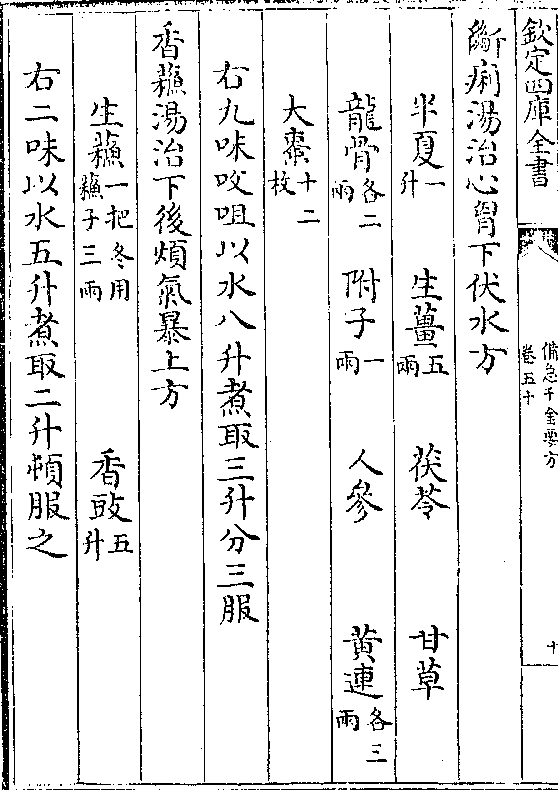 欽定四庫全書
備急千金要方
卷五十
十
斷痢湯治心胷下伏水方
半夏一升 生薑五兩 茯苓 甘草
龍骨各二兩 附子一兩 人參 黃連各三兩
大棗十二枚
右九味㕮咀以水八升煮取三升分三服
香蘓湯治下後煩氣暴上方
生蘓一把冬用蘓子三兩 香豉五升
右二味以水五升煮取二升頓服之